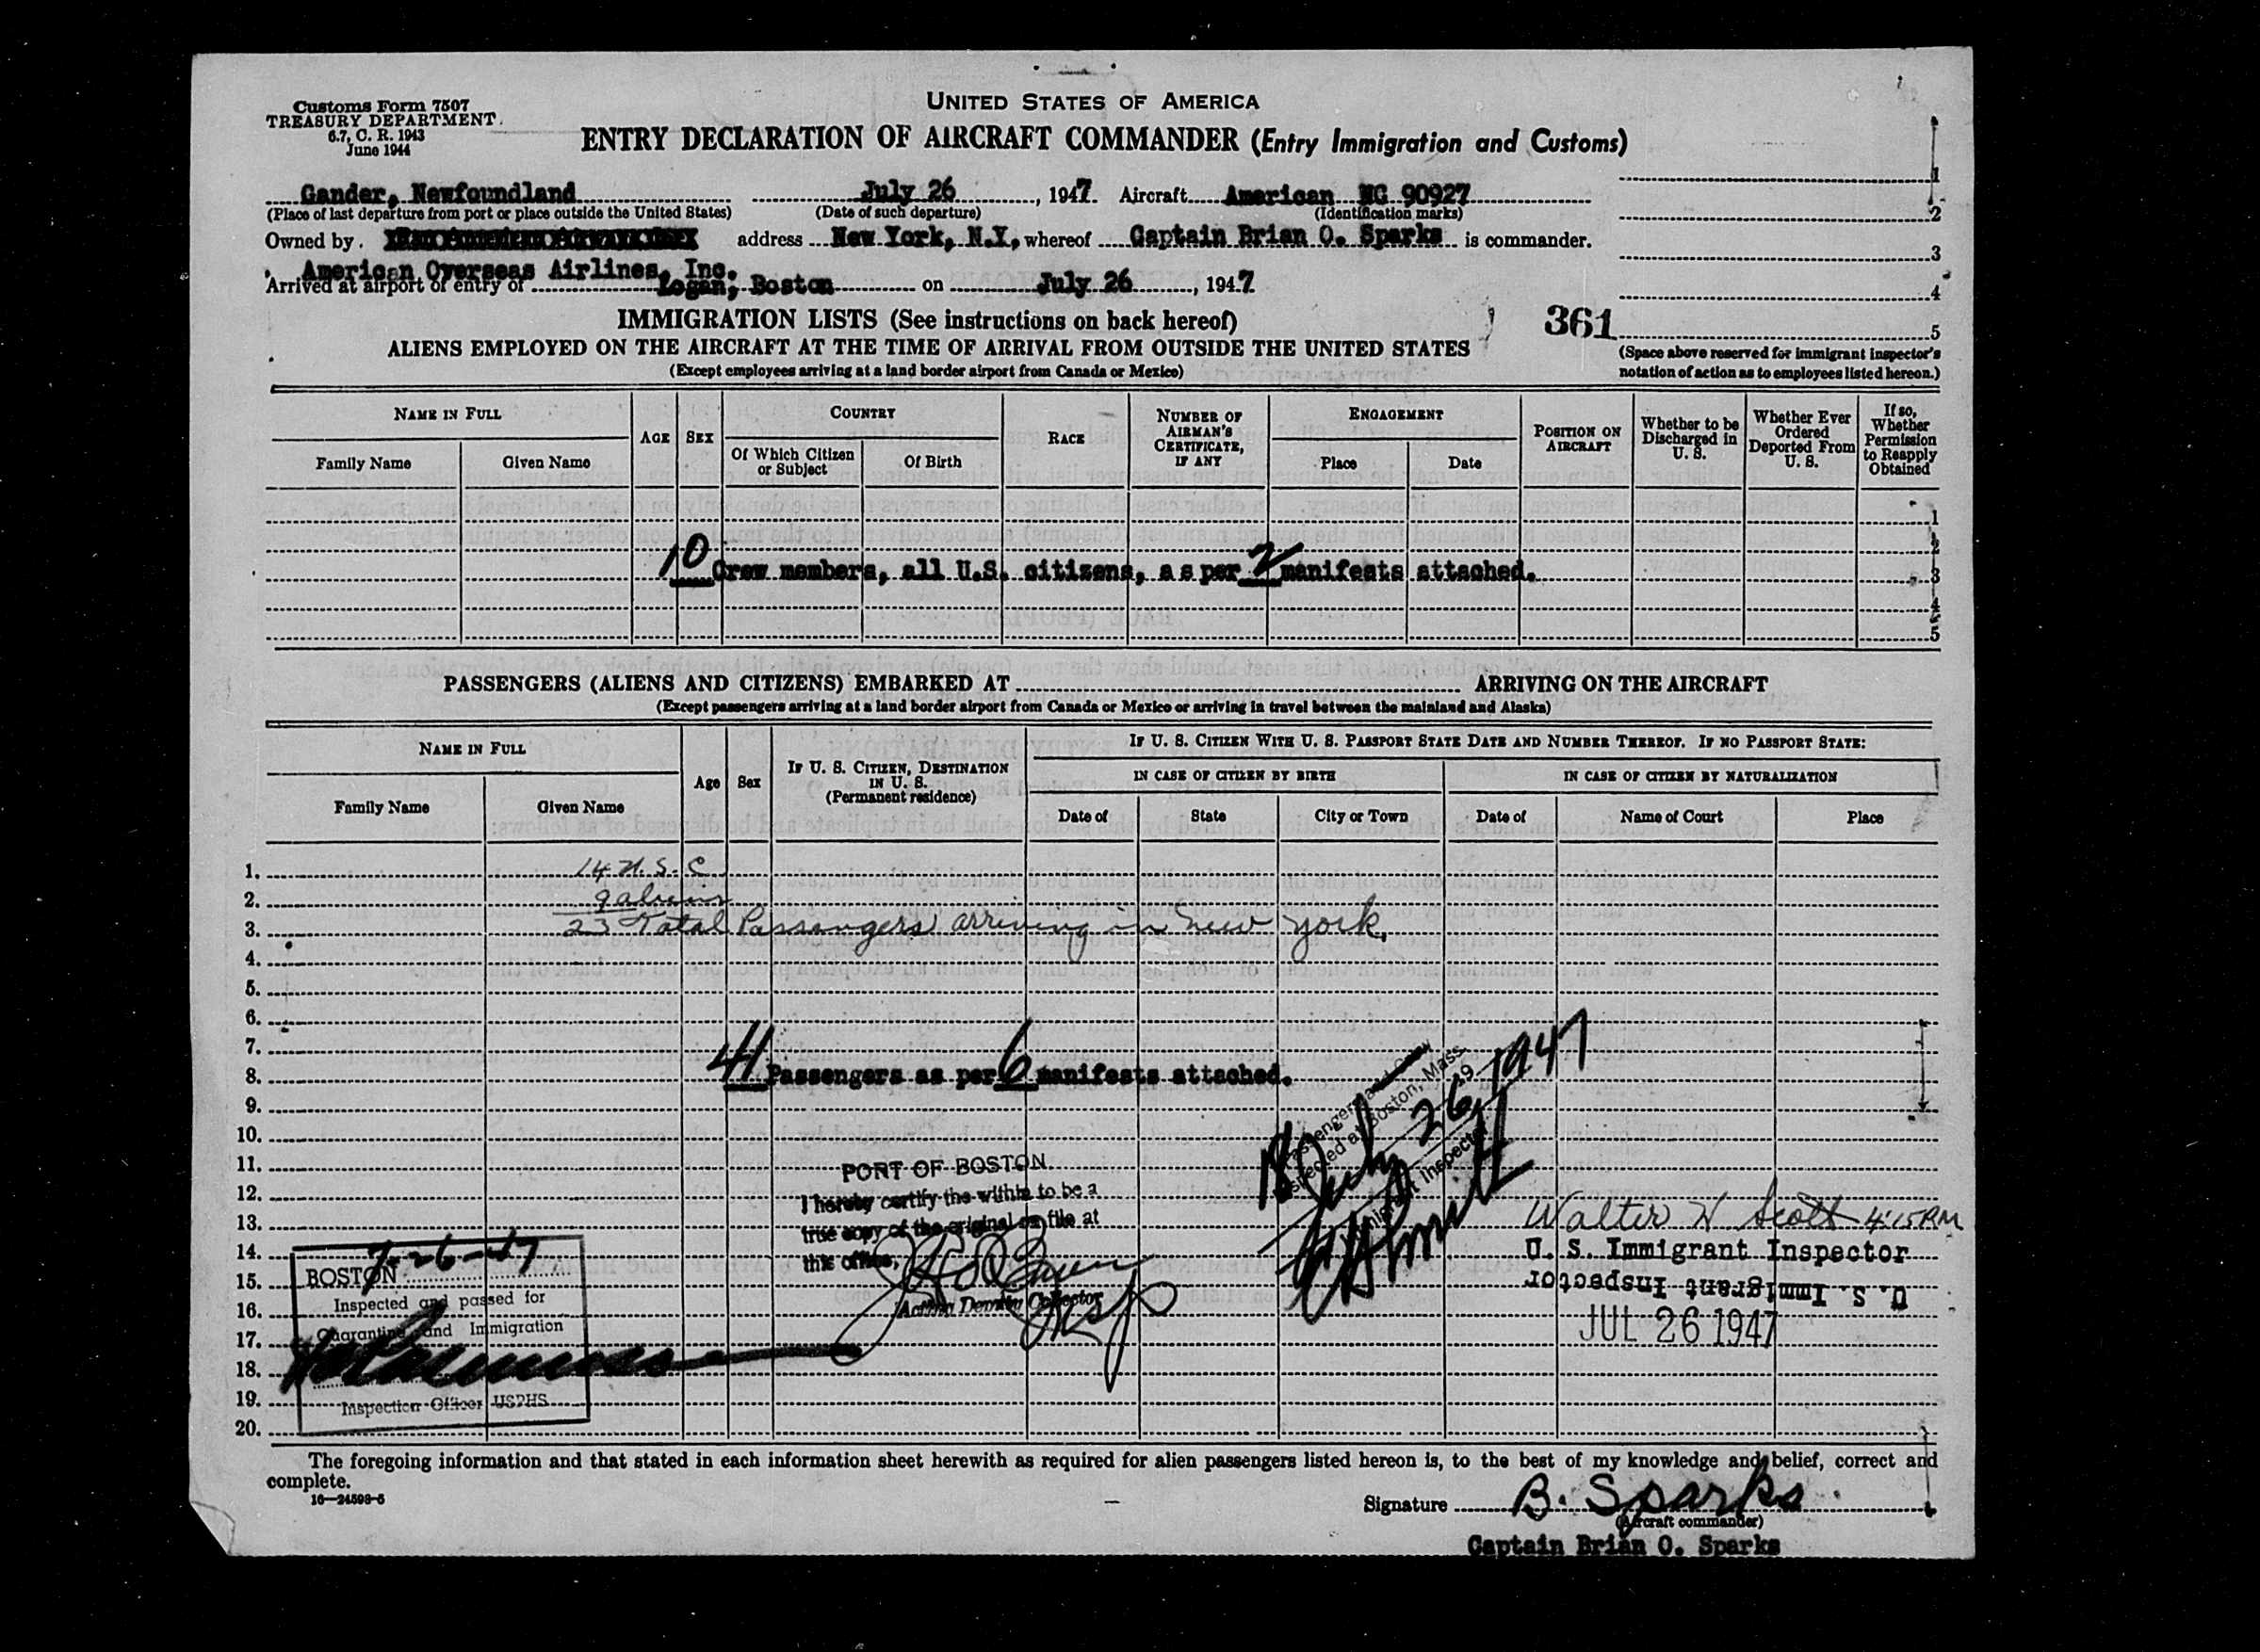 Customs Form 7507
TREASURY DEPARTMENT
6.7, C. R. 1943
June 1944
UNITED STATES OF AMERICA
ENTRY DECLARATION OF AIRCRAFT COMMANDER (Entry Immigration and Customs)
Gander, Newfoundland July 26, 1947. Aircraft American NC 90927
(Place of last departure from port or place outside the United States) (Date of such departure) (Identification marks)
Owned by address New York, N.Y. whereof Captain Brian O. Sparks is commander.
American Overseas Airlines, Inc.
Arrived at airport of entry of Logan, Boston on July 26, 1947
1
2
3
4
5
IMMIGRATION LISTS (See instructions on back hereof)
361
ALIENS EMPLOYED ON THE AIRCRAFT AT THE TIME OF ARRIVAL FROM OUTSIDE THE UNITED STATES
(Except employees arriving at a land border airport from Canada or Mexico)
(Space above reserved for immigrant inspector's
notation of action as to employees listed hereon.)
NAME IN FULL
Family Name Given Name
AGE
SEX
COUNTRY
Of Which Citizen or Subject
Of Birth
RACE
NUMBER OF AIRMAN'S CERTIFICATE, IF ANY
ENGAGEMENT
Place Date
POSITION ON AIRCRAFT
Whether to be Discharged in U. S.
Whether Ever Ordered Deported From U. S.
If so, Whether Permission to Reapply Obtained
1
2
10 Crew members, all U.S. citizens, as per 2 manifests attached. 3
4
5
PASSENGERS (ALIENS AND CITIZENS) EMBARKED AT ARRIVING ON THE AIRCRAFT
(Except passengers arriving at a land border airport from Canada or Mexico or arriving in travel between the mainland and Alaska)
NAME IN FULL
Family Name Given Name
Age
Sex
IF U. S. CITIZEN, DESTINATION IN U. S.
(Permanent residence)
IF U. S. CITIZEN WITH U. S. PASSPORT STATE DATE AND NUMBER THEREOF. IF NO PASSPORT STATE:
IN CASE OF CITIZEN BY BIRTH
Date of State City or Town
IN CASE OF CITIZEN BY NATURALIZATION
Date of Name of Court Place
1. 14 U.S.C
2. 9 aliens
3. 23 Total Passengers arriving in New York.
4.
5.
6.
7.
8. 41 Passengers as per 6 manifests attached.
9.
10.
11.
12.
13.
14.
15.
16.
17.
18.
19.
20.
18 Passengers and Crew
Inspected at Boston, Mass.
July 26 19 1947
Immigrant Inspector
PORT OF BOSTON
I hereby certify the within to be a
true copy of the original on file at
this office,
Acting Deputy Collector
Walter W Scott 4:15 PM
U. S. Immigrant Inspector
U. S. Immigrant Inspector
JUL 26 1947
7-26-47
BOSTON
Inspected and passed for
Quarantine and Immigration
Inspection Officer USPHS
The foregoing information and that stated in each information sheet herewith as required for alien passengers listed hereon is, to the best of my knowledge and belief, correct and
complete.
16—24598-5
Signature B. Sparks
(Aircraft commander)
Captain Brian O. Sparks